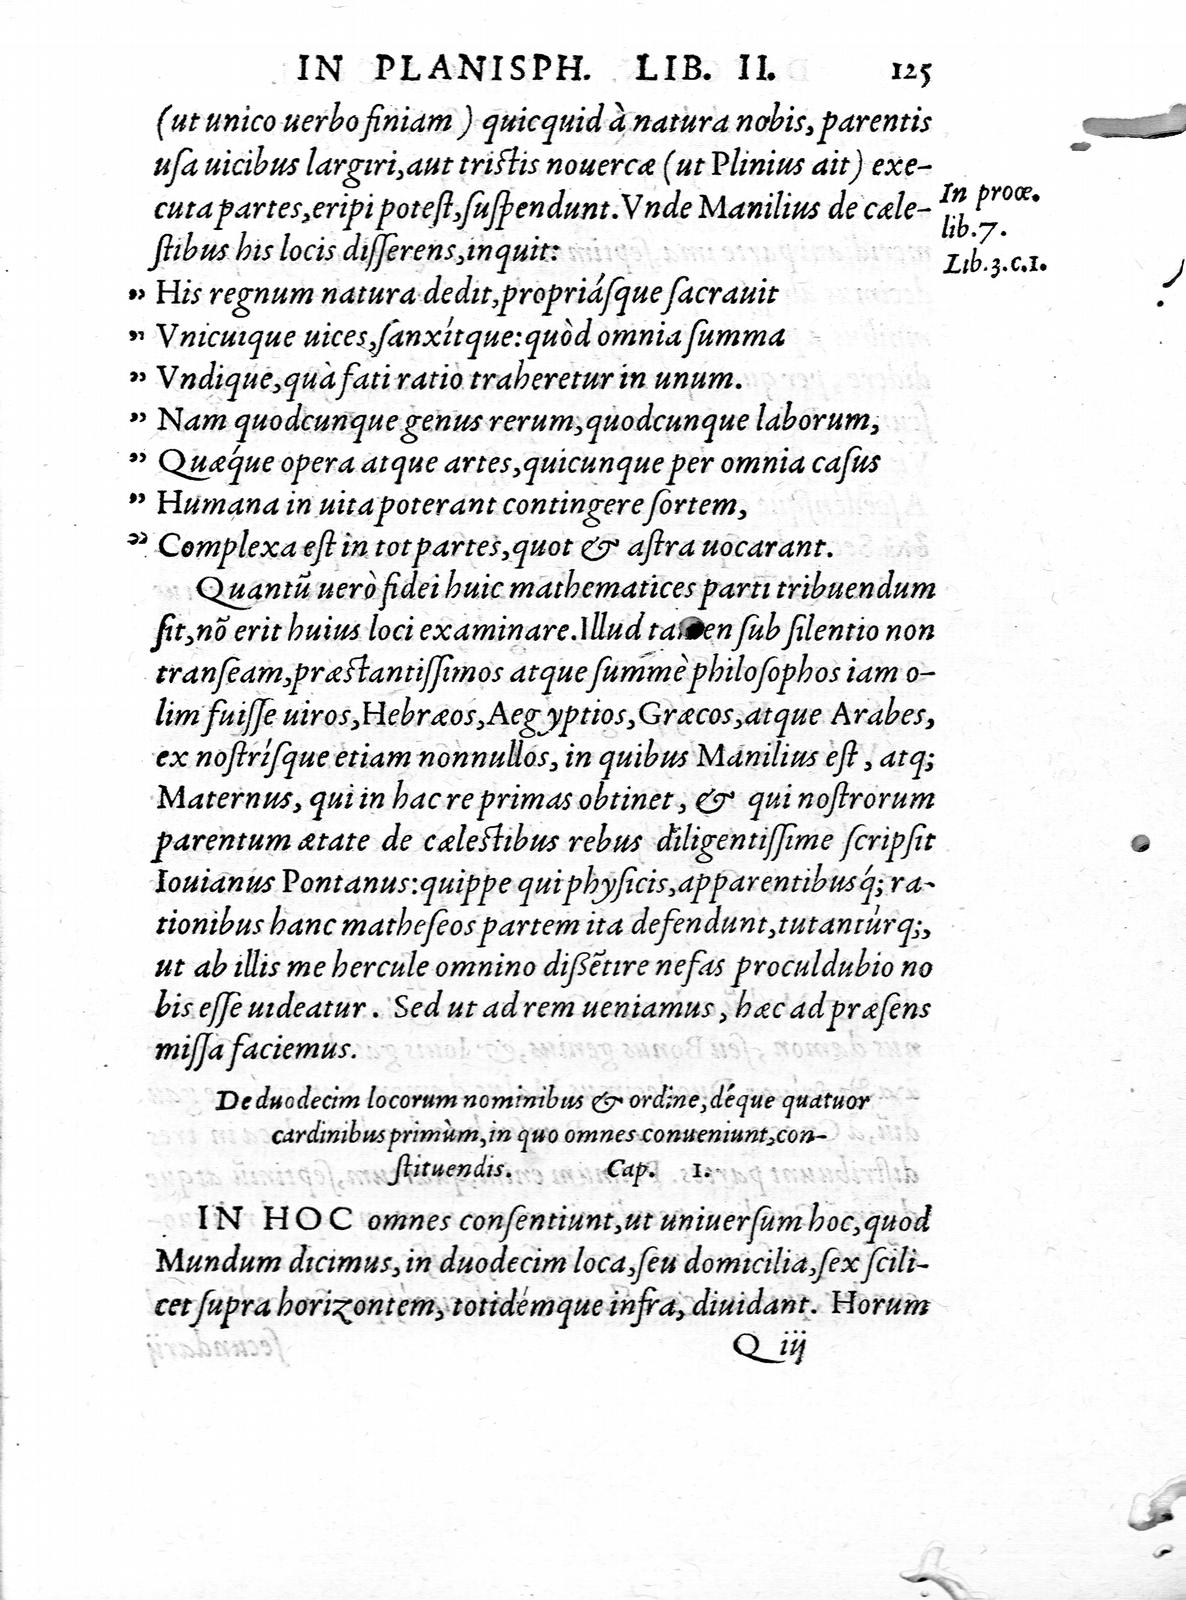 IN PLANISPH. LIB. II. 125
(ut unico uerbo finiam) quicquid à natura nobis, parentis
uſa uicibus largiri, aut triſtis nouercæ (ut Plinius ait) exe-
cuta partes, eripi poteſt, ſuſpendunt. Vnde Manilius de cæle-
ſtibus his locis diſſerens, inquit:
In proœ.
lib. 7.
Lib. 3. c. 1.
" His regnum natura dedit, propriáſque ſacrauit
" Vnicuique uices, ſanxítque: quòd omnia ſumma
" Vndique, quà fati ratio traheretur in unum.
" Nam quodcunque genus rerum, quodcunque laborum,
" Quæque opera atque artes, quicunque per omnia caſus
" Humana in uita poterant contingere ſortem,
" Complexa eſt in tot partes, quot & aſtra uocarant.
Quantũ uerò fidei huic mathematices parti tribuendum
ſit, nõ erit huius loci examinare. Illud tamen ſub ſilentio non
tranſeam, præſtantiſſimos atque ſummè philoſophos iam o-
lim fuiſſe uiros, Hebræos, Aegyptios, Græcos, atque Arabes,
ex noſtríſque etiam nonnullos, in quibus Manilius eſt, atq;
Maternus, qui in hac re primas obtinet, & qui noſtrorum
parentum ætate de cæleſtibus rebus diligentiſſime ſcripſit
Iouianus Pontanus: quippe qui phyſicis, apparentibusq́; ra-
tionibus hanc matheſeos partem ita defendunt, tutantúrq;,
ut ab illis me hercule omnino diſsẽtire nefas proculdubio no
bis eſſe uideatur. Sed ut ad rem ueniamus, hæc ad præſens
miſſa faciemus.
De duodecim locorum nominibus & ordine, déque quatuor
cardinibus primùm, in quo omnes conueniunt, con-
ſtituendis. Cap. 1.
IN HOC omnes conſentiunt, ut uniuerſum hoc, quod
Mundum dicimus, in duodecim loca, ſeu domicilia, ſex ſcili-
cet ſupra horizontem, totidémque infra, diuidant. Horum
Q iij